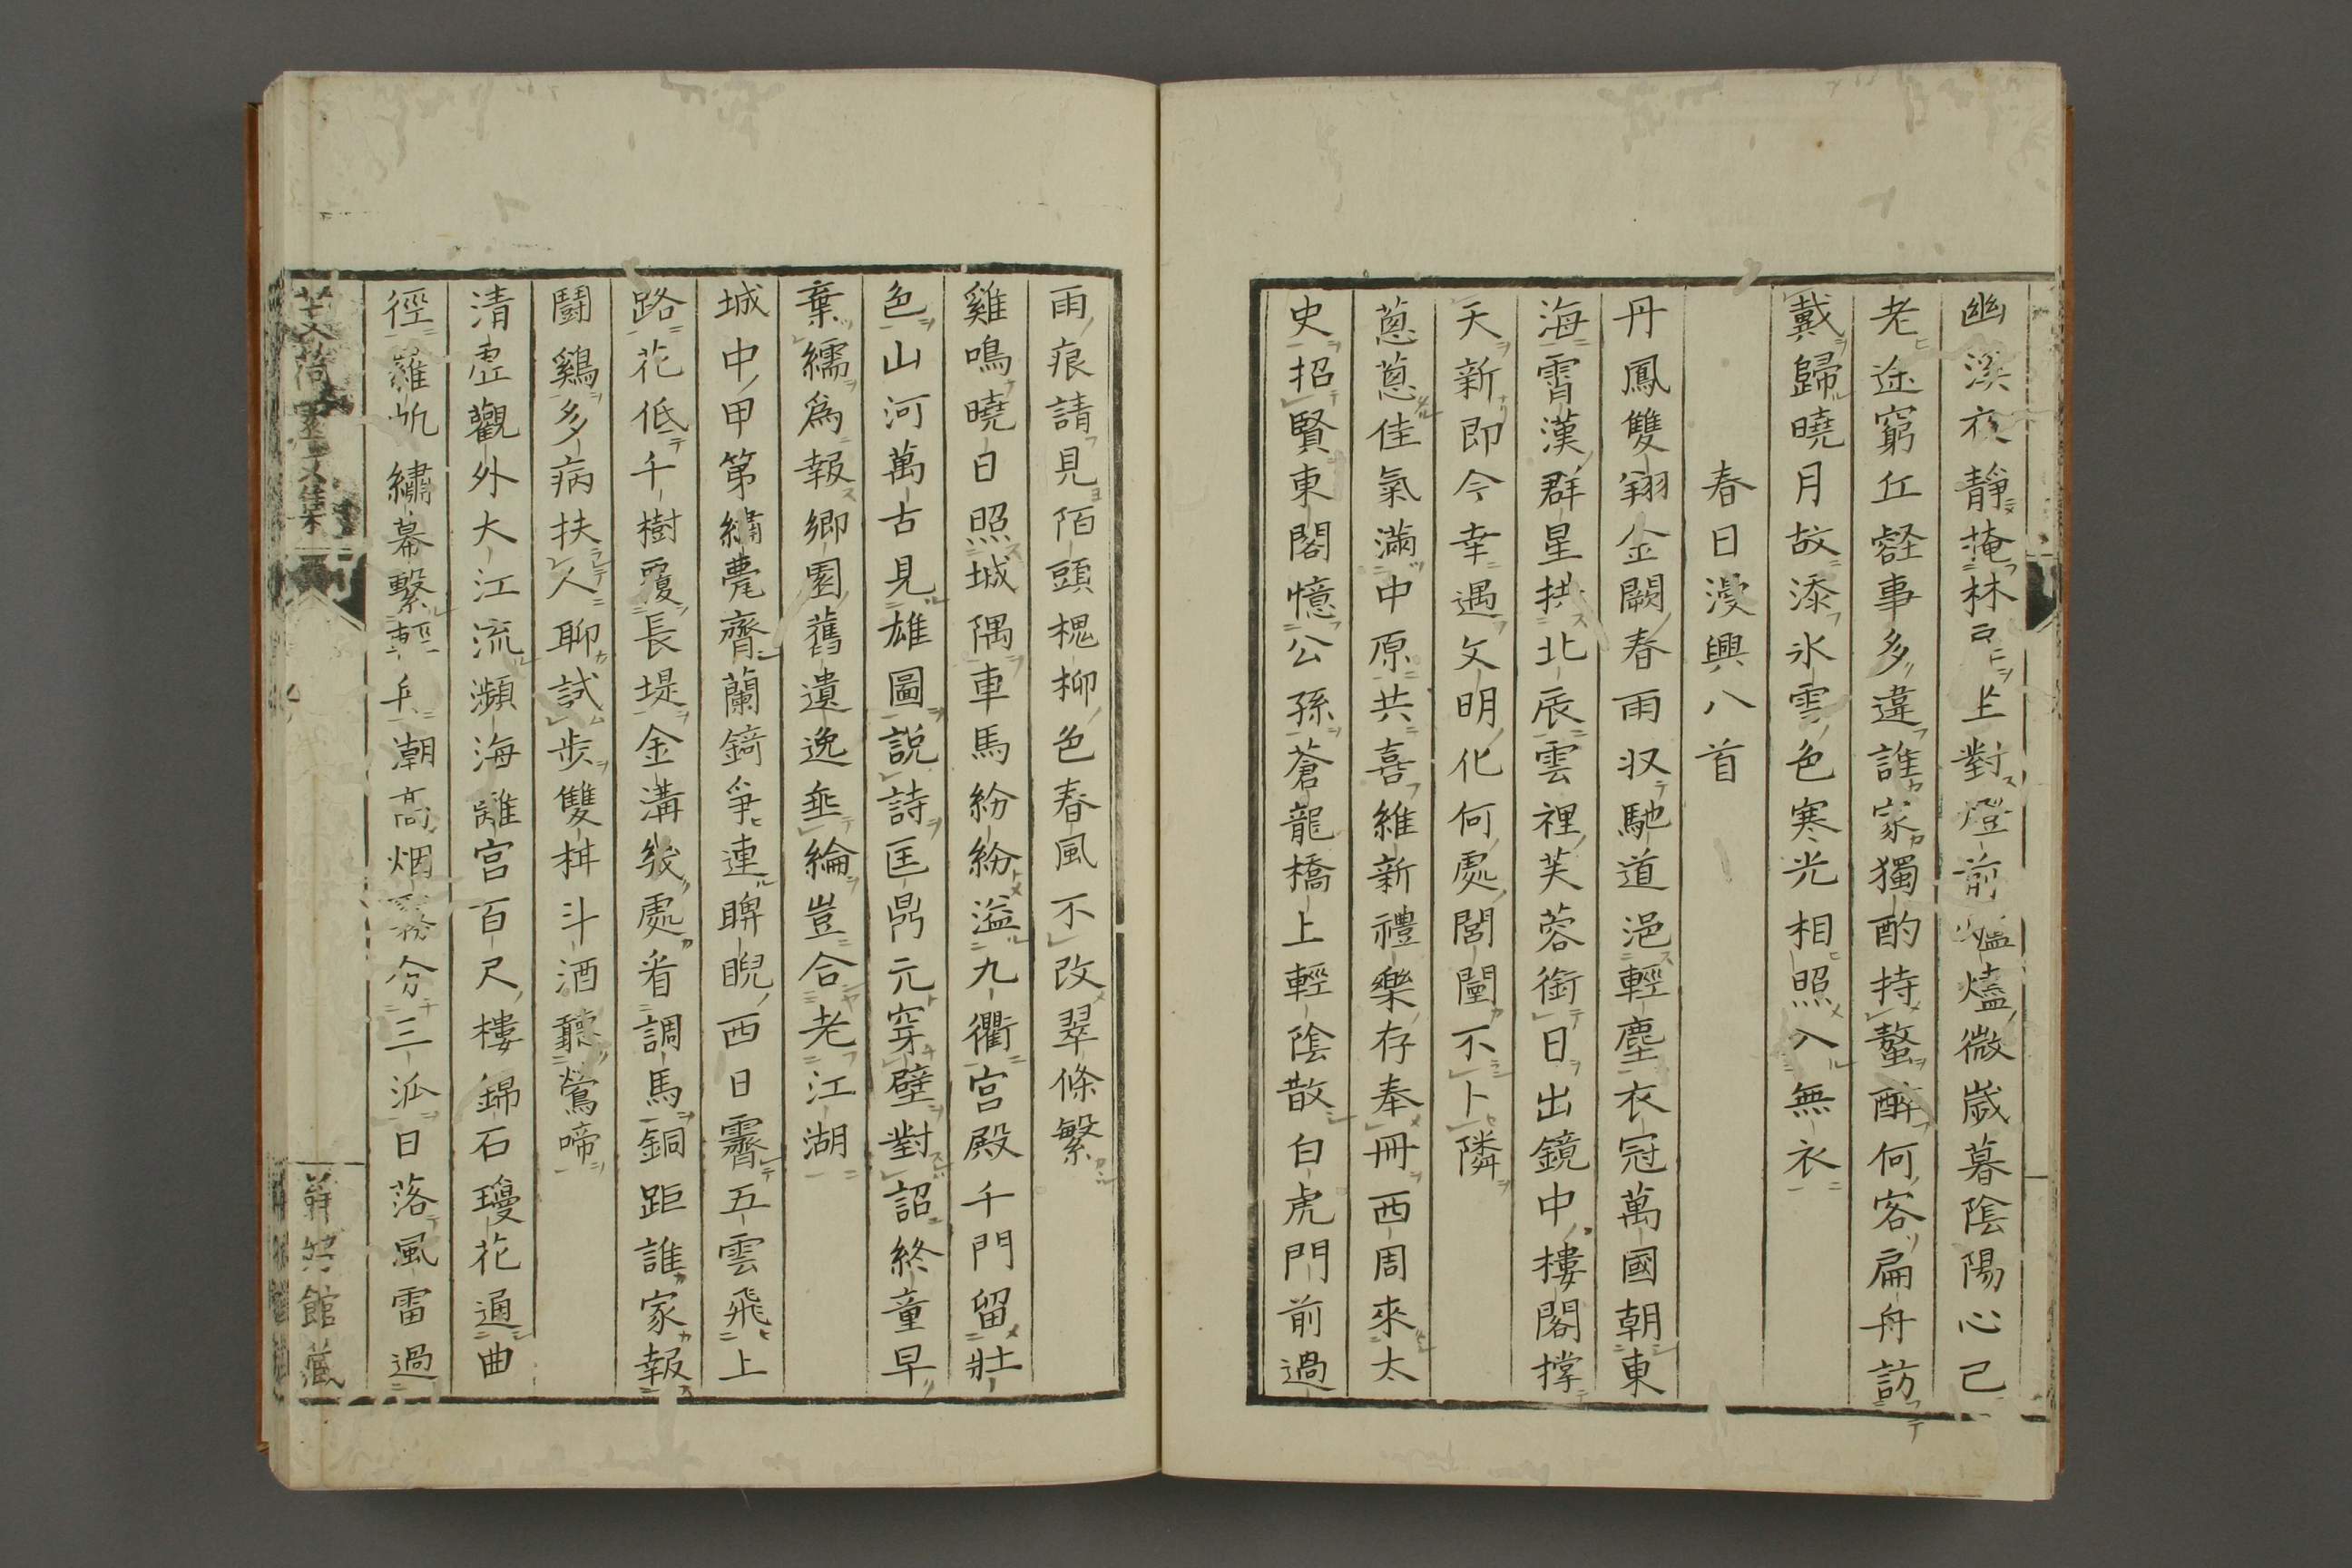 幽溪夜靜掩林上對燈前燼燼微歲暮陰陽心已
老途窮丘壑事多違誰家獨酌持螯醉何客扁舟訪
戴歸曉月故添氷雪色寒光相照入無衣
春日漫興八首
丹鳳雙翔金闕春雨収馳道浥輕塵衣冠萬國朝東
海霄漢群星拱北辰雲裡芙蓉銜日出鏡中樓閣撑
天新即今幸遇文明化何處閭闉不卜隣
蔥蔥佳氣滿中原共喜維新禮樂存奉冊西周來太
史招賢東閣憶公孫蒼龍橋上輕陰散白虎門前過
雨痕請見陌頭槐柳色春風不改翠條繁
雞鳴曉日照城隅車馬紛紛溢九衢宮殿千門留壯
色山河萬古見雄圖說詩匡鼎元穿壁對詔終童早
棄繻為報鄉園舊遺逸垂綸豈合老江湖
城中甲第繡甍齊蘭錡爭連睥睨西日霽五雲飛上
路花低千樹覆長堤金溝幾處看調馬銅距誰家報
鬪鷄多病扶人聊試步雙柑斗酒聽鶯啼
清虛觀外大江流瀕海離宮百尺樓錦石瓊花通曲
徑蘿帆繡幕繫輕舟潮高烟霧分三派日落風雷過
館藏